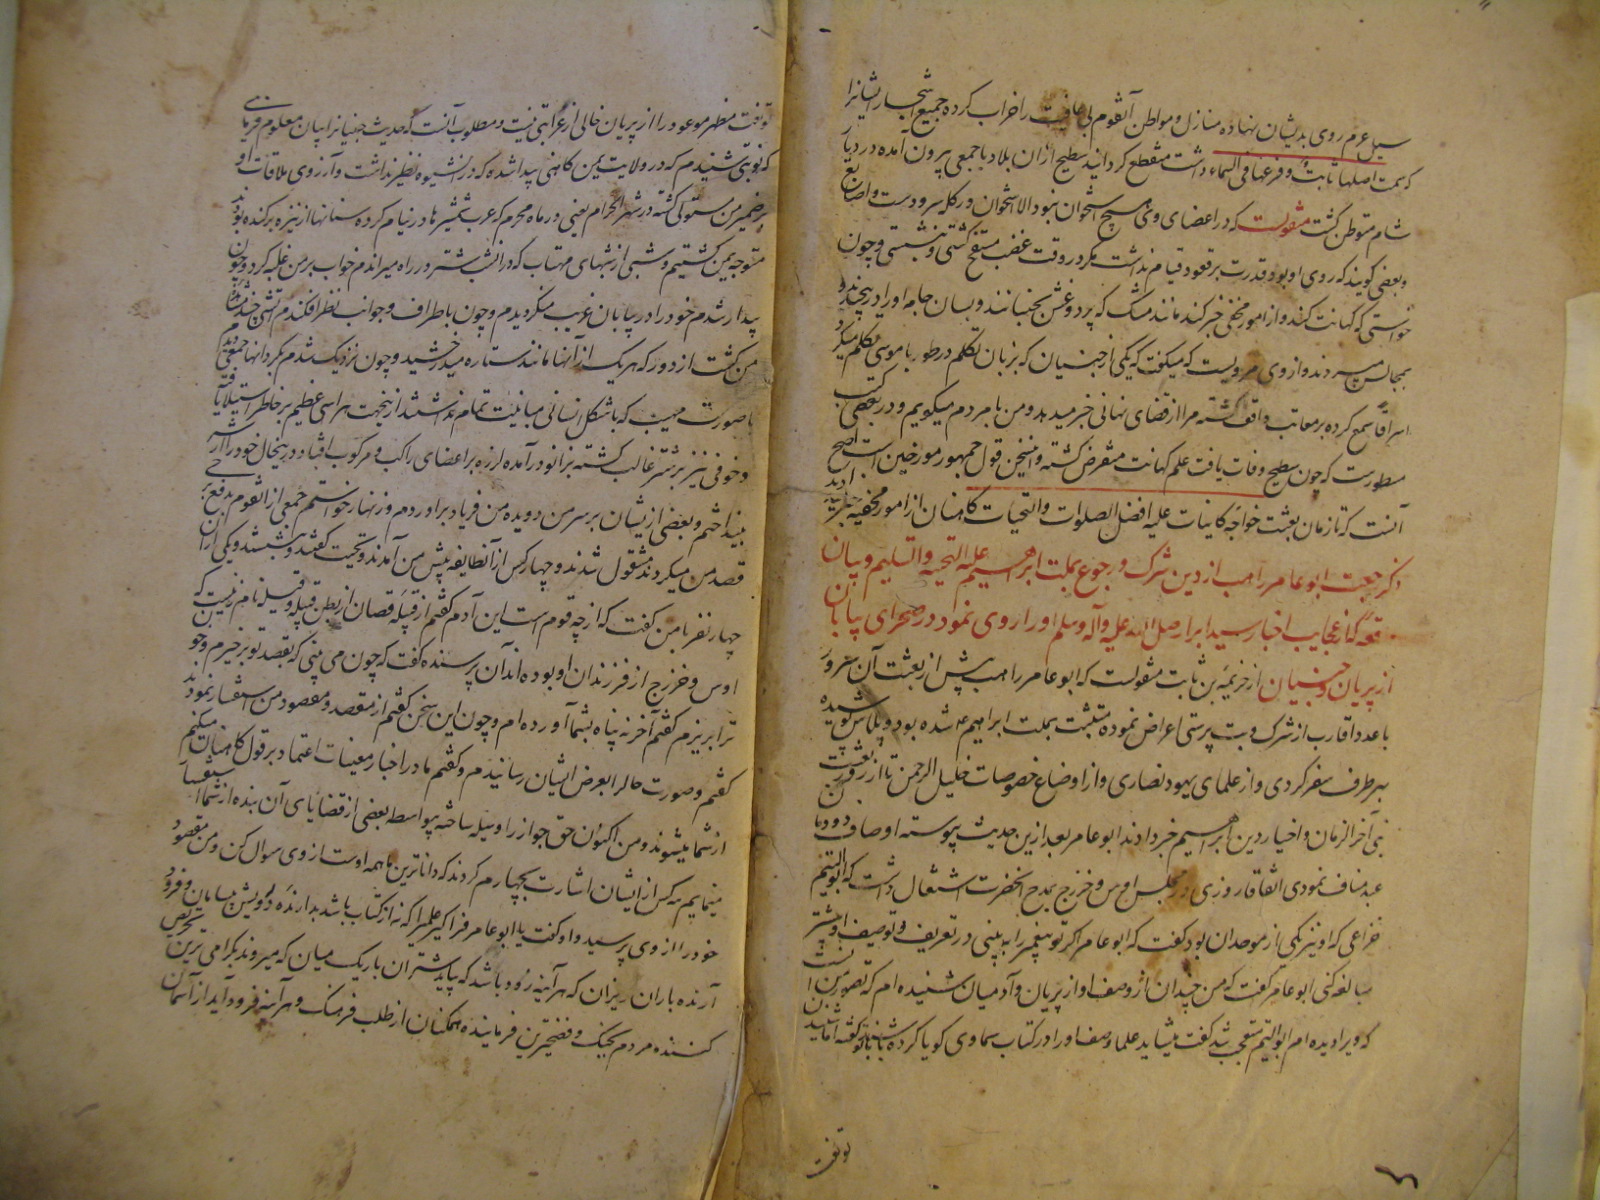 سیل عرم روی بدیشان نهاده منازل و مواطن آنقوم بی عاقبت را خراب کرده جمیع اشجار ایشانرا
که سمت اصلها ثابت و فرعها فی السماء داشت منقطع گردانید سطیح ازان بلاد با جمعی بیرون آمده در دیار
شام متوطن گشت منقولست که در اعضای وی هیچ استخوان نبود الا استخوان در کله سر و دست و اصابع
و بعضی گویند که روی او بود و قدرت بر قعود و قیام نداشت مگر در وقت غضب منتفخ گشتی و بنشستی و چون
خواستی که کهانت کند و از امور مخفی خبر کند مانند مشک که پر دوغش بجنبانند و بسان جامه او را در پیچیده
بمجالس میبردند و از وی مرویست که میگفت که یکی از جنیان که بزبان تکلم در طور با موسی تکلم میکرد
استراق سمع کرده بر مغایب واقف گشته مرا از قضای نهانی خبر میدهد و من با مردم میگویم و در بعضی کتب
مسطورست که چون سطیح وفات یافت علم کهانت منقرض گشته و این سخن قول جمهور مورخین است اصح
آنست که تا زمان بعثت خواجه کاینات علیه افضل الصلوات و التحیات کاهنان از امور مخفیه خبر میدادند
ذکر رجعت ابو عامر راهب از دین شرک و رجوع بملت ابراهیم علیه التحیه و التسلیم و بیان
آنچه از عجایب اخبار سید ابرار صلی الله علیه وآله وسلم او را روی نمود در صحرای بیابان
از پریان و جنیان از خزیمة بن ثابت منقولست که ابو عامر راهب پیش از بعثت آن سرور
با عدد اقارب از شرک و بت پرستی اعراض نموده متشبث بملت ابراهیم ع شده بود و پلاس پوشیده
بهر طرف سفر کردی و از علمای یهود نصاری و از اوضاع خصوصات خلیل الرحمن تا از قرب بعثت
نبی آخر الزمان و اخیار دین ابراهیم خبر دادند ابو عامر بعد ازین حدیث پیوسته اوصاف دودمان
عبد مناف نمودی اتفاقا روزی در مجلس اوس و خزرج بمدح آنحضرت اشتغال داشت که ابو الیتیم
خزاعی که او نیز یکی از موحدان بود گفت که ابو عامر اگر تو پیغمبر را به بینی در تعریف و توصیف او بیشتر
مبالغه کنی ابو عامر گفت که من چندان از وصف او از پریان و آدمیان شنیده ام که تصور من آنست
که ویرا دیده ام ابو الیتیم متعجب شد گفت میشاید علما وصف او را در کتاب سماوی گویا کرده با تو گفته اند
توقف
توقف مظهر موعود را از پریان خالی از غرابتی نیست و مطلوب آنست که حدیث جنیانرا بیان معلوم فرمائی
که نوبتی شنیدم که در ولایت یمن کاهنی پیدا شده که در آنشیوه نظیر نداشت و آرزوی ملاقات او
بر ضمیر من مستولی گشته در شهر الحرام یعنی در ماه محرم که عرب شمشیرها در نیام کرده سنانها از نیزه برکنده بودند
متوجه یمن گشتیم و شبی از شبهای مهتاب که در آنشب شتر در راه میراندم خواب بر من غلبه کرد و چون
بیدار شدم خود را در بیابان غریب منکر دیدم و چون باطراف و جوانب نظر افکندم آتشی چند مشاهده
من گشت از دور که هر یک از آنها مانند ستاره میدرخشید و چون نزدیک شدم بگرد آنها جمعی دیدم
با صورت مهیب که با شکل انسانی مباینت تمام داشتند ازینجهت هراسی عظیم بر خاطر استیلا یافت
و خوفی نیز بر شتر غالب گشته بزانو در آمده لرزه بر اعضای راکب و مرکوب افتاد در ینحال خود را از شتر
بینداختم و بعضی ازیشان بر سر من دویده من فریاد بر آوردم و زنهار خواستم جمعی از انقوم بدفع
قصد من میکردند مشغول شدند و چهار کس از آنطایفه پیش من آمدند و تحیت گفتند و بنشستند و یکی از آن
چهار نفر با من گفت که از چه قوم است این آدم گفتم از قبیله غسان از بطن قبیله و قیله نام زنیست که
اوس و خزرج از فرزندان او بوده اند آن پرسنده گفت که چون می بینی که بقصد تو برخیزم و خون
ترا بریزم گفتم آخر نه پناه بشما آورده ام و چون این سخن گفتم از مقصد و مقصود من استفسار نمودند
گفتم و صورت حال را بعرض ایشان رسانیدم و گفتم ما در اخبار مغیبات اعتماد بر قول کاهنان میکنیم
از شما میشنوند و من اکنون حق جوار را وسیله ساخته بیواسطه بعضی از قضایای آن بنده از شما استفسار
مینمایم سه کس از ایشان اشارت بچهارم کردند که داناترین ما همه اوست از وی سوال کن و من مقصود
خود را از وی پرسید و او گفت یا ابو عامر فرا گیر علمیرا که نه از کتاب باشد بدارنده و وویش بیابان و فرود
آرنده باران ریزان که هر آینه زود باشد که بیاید شتران باریک میان که میروند بگرامی ترین
کننده مردم بجنگ و فصیحترین فرماینده همکنان از طلب فرهنگ و هر آینه فرود آید از آسمان